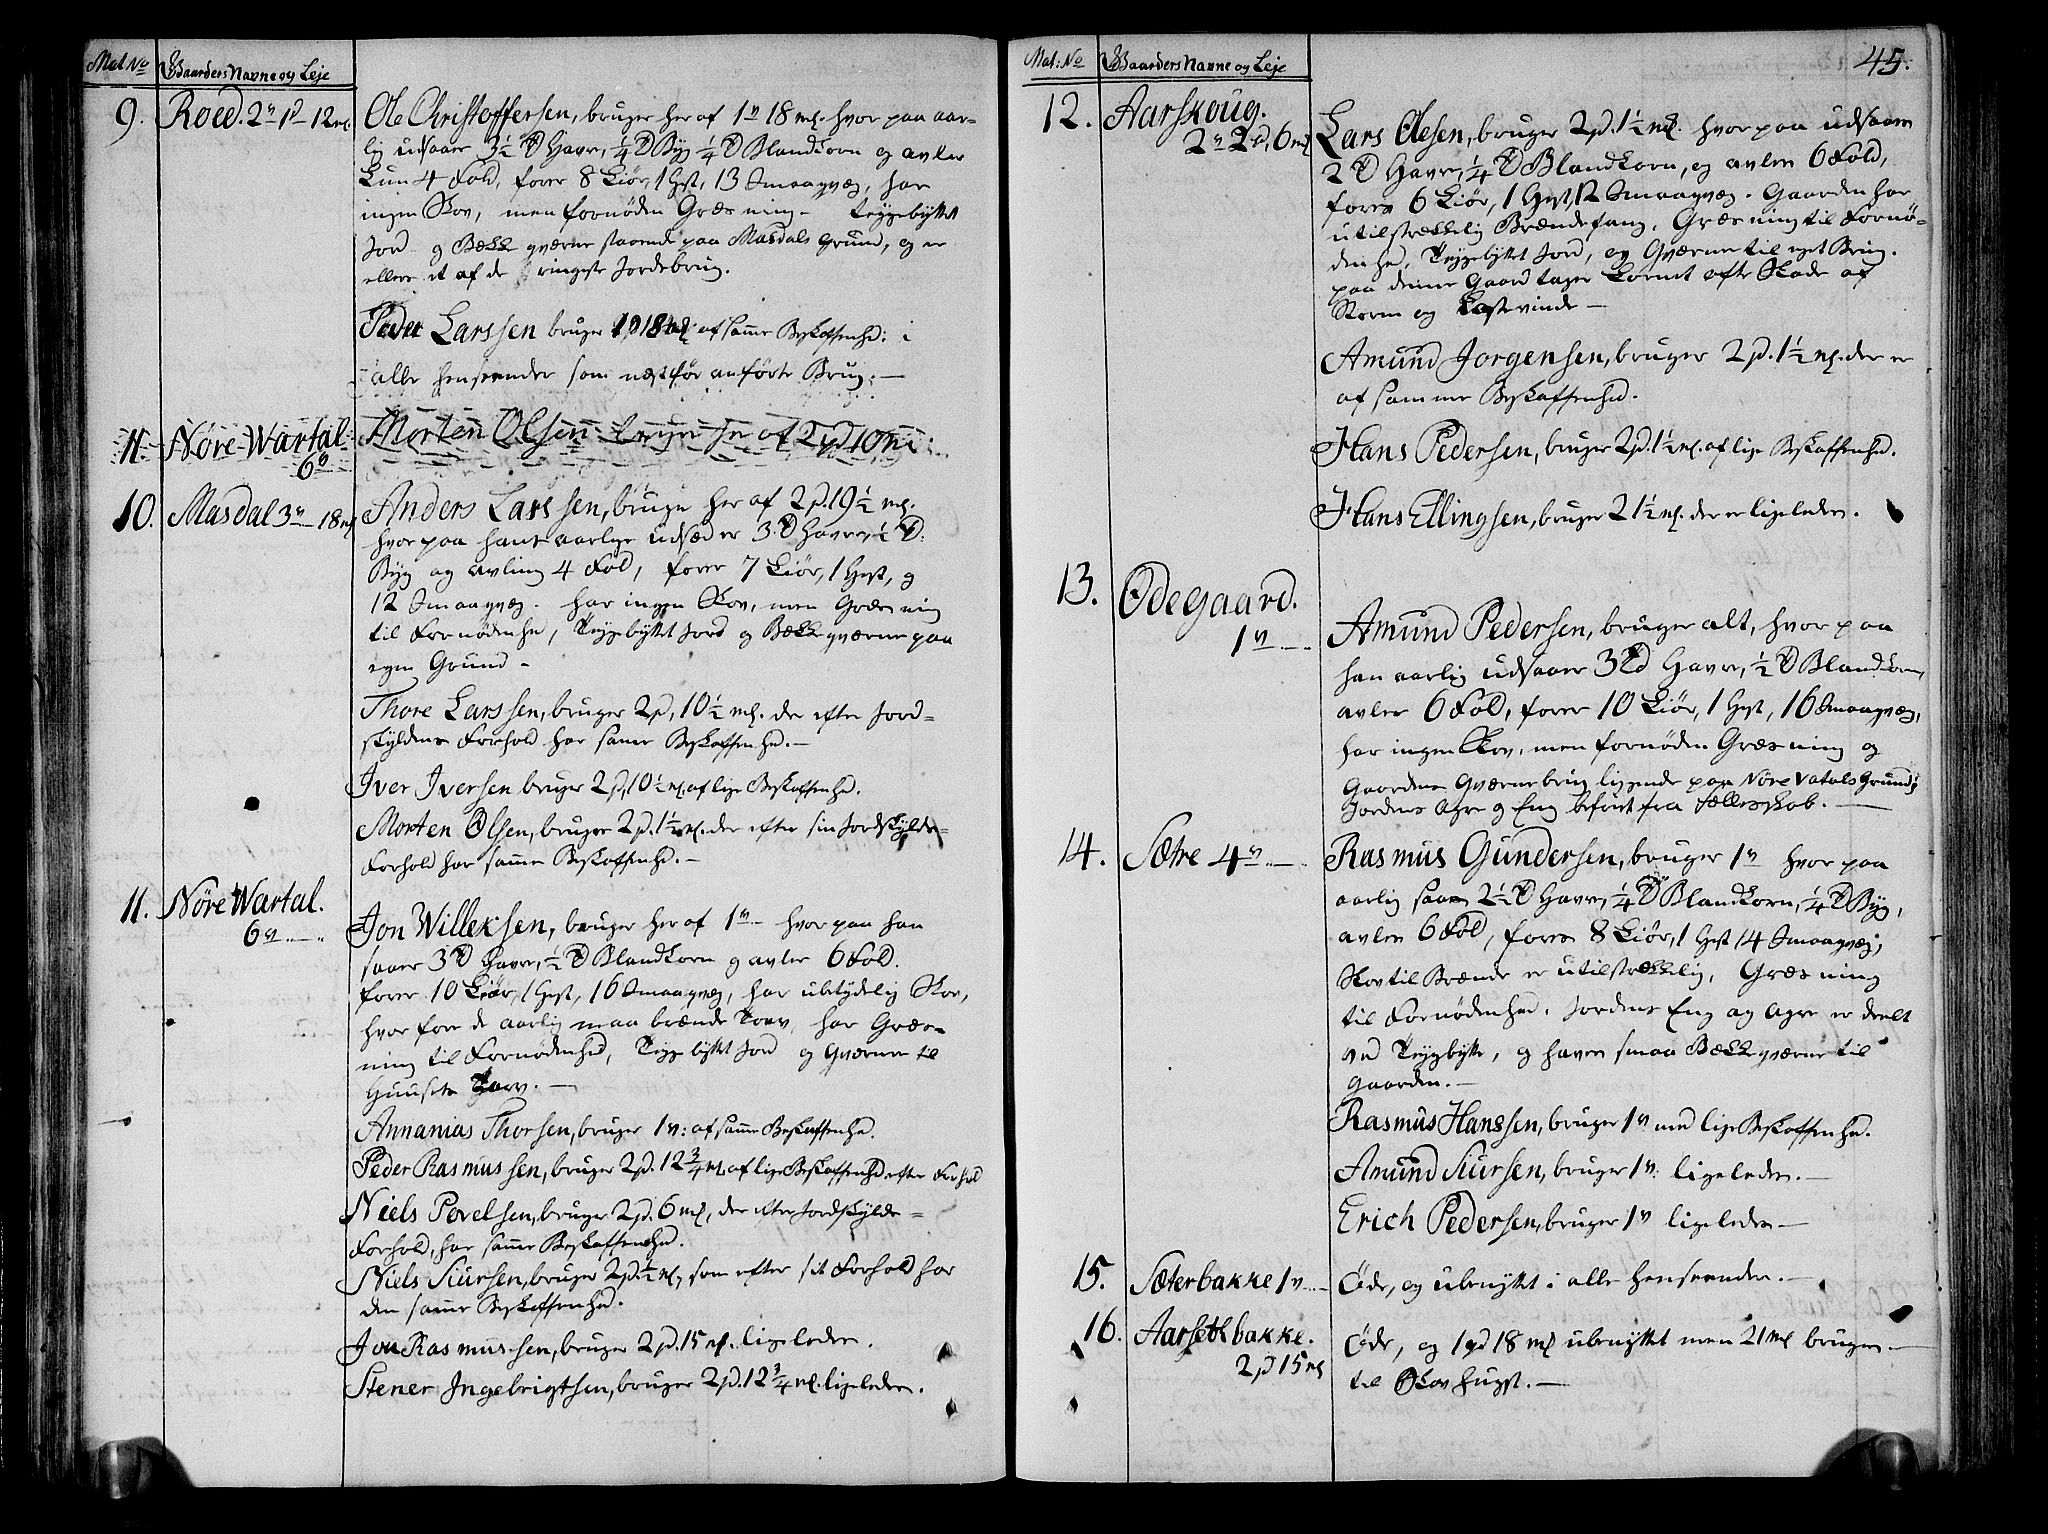 Mat No Gaarders Navne og Leje
9. Roed. 2 1 12 Ole Christoffersen, bruger her af 1 18 mk. hvor paa aar-
lig udsaaer 3½ Td Havre, ¼ Td Byg ¼ Td Blandkorn og avler
kun 4 Fold, foder 8 Kiør, 1 Hest, 13 Smaaqvæg, har
ingen Skov, men fornøden Græsning - Teigebyttet
Jord og Bække qværne staaende paa Masdals Grund, og er
ellers et af de ringeste Jordebrug.
Peder Larssen bruger 1 18 af samme Beskaffenhed: i
alle henseender som næstfør anførte Brug. -
11. Nøre Wartal Morten Olsen bruger her af 2 10
6
10. Masdal 3 18 Anders Larssen, bruger her af 2 p. 19½ mk.
hvor paa hans aarlige Udsæd er 3 Td Havre, ½ Td
Byg og avling 4 Fold, foder 7 Kiør, 1 Hest, og
12 Smaaqvæg. har ingen Skov, men Græsning
til Fornødenhed, Teigebyttet Jord og Bække qværne paa
egen Grund -
Thore Larssen, bruger 2 p, 10½ mk. der efter Jord-
skyldens Forhold har samme Beskaffenhed. -
Iver Iversen bruger 2 p, 10½ mk. af lige Beskaffenhed.
Morten Olsen, bruger 2 p. 1½ mk. der efter sin Jordskylds-
Forhold har samme Beskaffenhed. -
11. Nøre Wartal. Jon Willeksen, bruger her af 1 - hvor paa han
6
saaer 3 Td Havre, ½ Td Blandkorn og avler 6 Fold.
foder 10 Kiør, 1 Hest, 16 Smaaqvæg, har ubetydelig Skov,
hvor fore de aarlig maa brænde Torv, har Græs-
ning til Fornødenhed, Teige byttet Jord og Qværne til
Huusets Tarv. -
Annanias Thorsen, bruger 1 : af samme Beskaffenhed.
Peder Rasmussen, bruger 2 p. 12¾ mk. af lige Beskaffenhed efter Forhold
Niels Povelsen, bruger 2 p. 6 mk, der efter Jordskylds-
Forhold, har samme Beskaffenhed.
Niels Siursen, bruger 2 p. ½ mk, som efter sit Forhold har
den samme Beskaffenhed.
Jon Rasmussen, bruger 2 p. 15 mk. ligeledes.
Stener Ingebrigtsen, bruger 2 p. 12¾ mk. ligeledes.
45.
Mat: No Gaarders Navne og Leje
12. Aarskoug. Lars Olesen, bruger 2 p. 1½ mk. hvor paa udsaaes
2 2 6
2 Td Havre, ¼ Td Blandkorn, og avler 6 Fold,
foder 6 Kiør, 1 Hest, 12 Smaaqvæg. Gaarden har
utilstrækkelig Brændefang, Græsning til Fornø-
denhed, Teigebyttet Jord, og Qværne til eget Brug.
paa denne Gaard tager Kornet ofte Skade af
Storm og Kastevinde -
Amund Jorgensen, bruger 2 p. 1½ mk. der er
af samme Beskaffenhed.
Hans Pedersen, bruger 2 p. 1½ mk. af lige Beskaffenhed.
Hans Ellingsen, bruger 2 1½ mk. der er ligeledes.
13. Ødegaard. Amund Pedersen, bruger alt, hvor paa
1
han aarlig udsaaer 3 Td Havre, ½ Td Blandkorn,
avler 6 Fold, foder 10 Kiør, 1 Hest, 16 Smaaqvæg,
har ingen Skov, men fornøden Græsning og
Gaardens Qværnebrug liggende paa Nøre Vatals Grund;
Jordens Ager og Eng befriet fra Fællesskab. -
14. Sætre 4 Rasmus Gundersen, bruger 1 hvor paa
aarlig saaes 2½ Td Havre, ¼ Td Blandkorn, ¼ Td Byg,
avler 6 Fold, foder 8 Kiør, 1 Hest 14 Smaaqvæg,
Skov til Brænde er utilstrækkelig, Græsning
til Fornødenhed. Jordens Eng og Ager er deelt
ved Teigbytte, og haver smaa Bække qværne til
Gaarden. -
Rasmus Hanssen, bruger 1 med lige Beskaffenhed.
Amund Siursen, bruger 1 . ligeledes. -
Erich Pedersen, bruger 1 ligeledes -
15. Sæterbakke 1 Øde, og ubenyttet i alle henseender. -
16. Aarsethbakke. Øde, og 1 18 mk ubenyttet men 21 mk bruges
2 p 15 mk
til Skov hugst. -